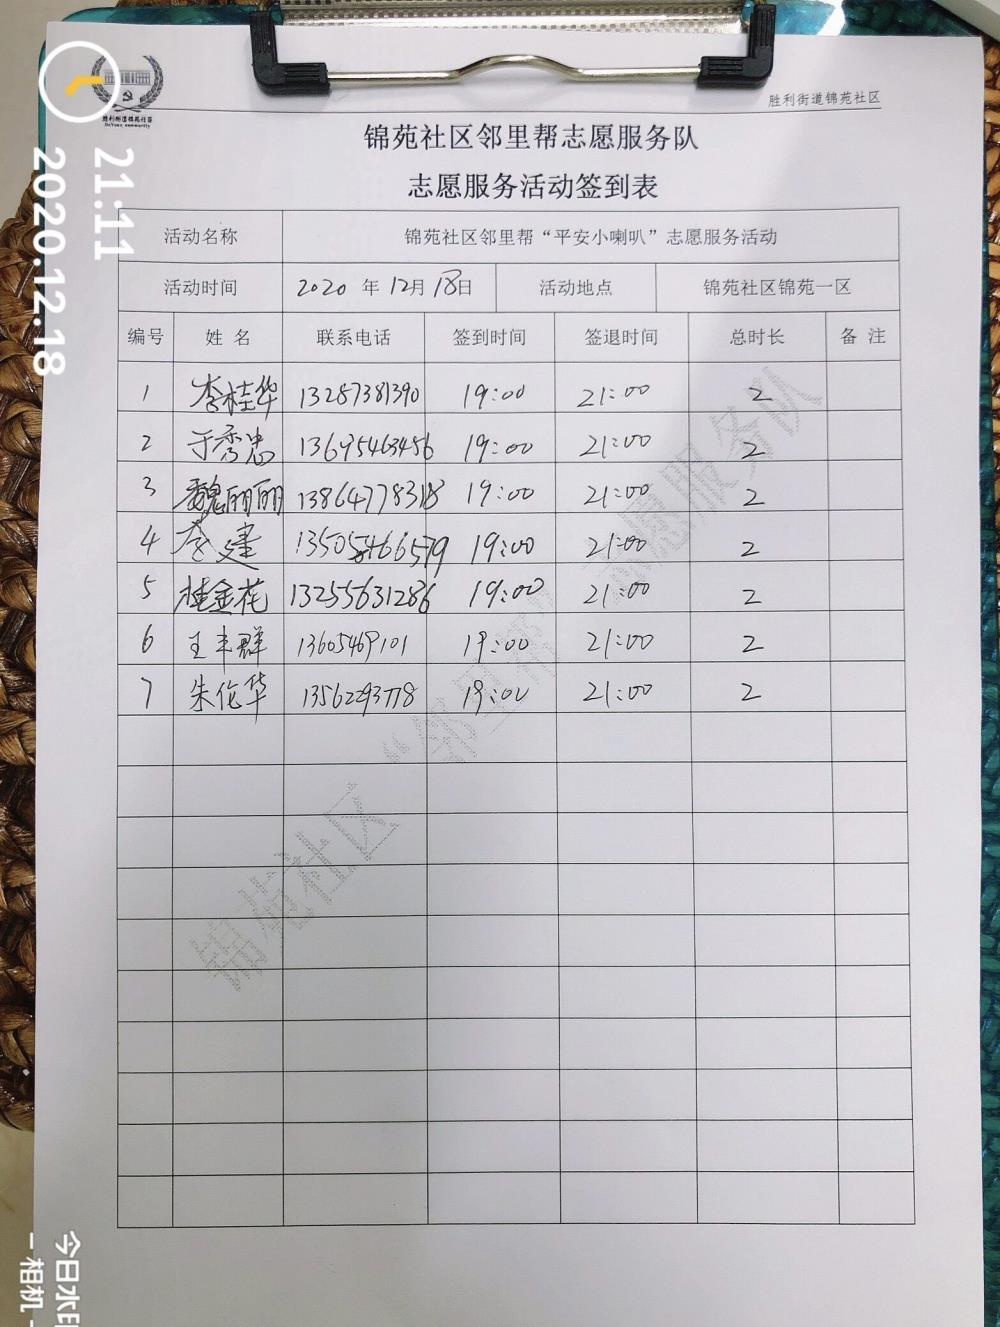 胜利街道锦苑社区
胜利街道锦苑社区
锦苑社区邻里帮志愿服务队
志愿服务活动签到表
活动名称 锦苑社区邻里帮“平安小喇叭”志愿服务活动
活动时间 2020 年 12月 18日 活动地点 锦苑社区锦苑一区
编号 姓 名 联系电话 签到时间 签退时间 总时长 备 注
1 李桂华 13287381390 19:00 21:00 2
2 于秀忠 13695463456 19:00 21:00 2
3 魏丽丽 13864778318 19:00 21:00 2
4 李建 13505466579 19:00 21:00 2
5 桂金花 13255631286 19:00 21:00 2
6 王丰群 1360546 101 19:00 21:00 2
7 朱伦华 13562293778 19:00 21:00 2
锦苑社区“邻里帮”志愿服务队
21:11
2020.12.18
今日水印
相机